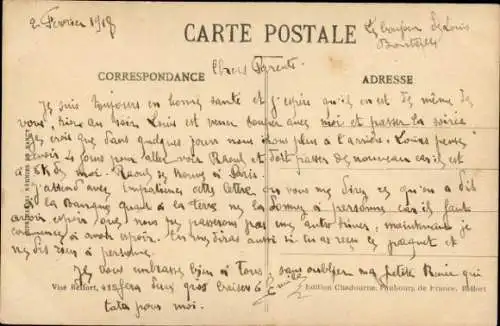 2 Février 1918
CARTE POSTALE
Le de Louis
Chers Parents
CORRESPONDANCE
ADRESSE
Je suis toujours en bonne santé et j'espère qu'il en est de même de
vous, hier au soir Louis est venu souper avec moi et passer la soirée
je crois que dans quelques jours nous irons plus à l'arrière. Louis pense
avoir 4 jours pour aller voir Raoul et doit passer de nouveau car il est
à 8K de moi. Raoul se trouve à Paris.
J'attend avec impatience cette lettre où vous me direz ce qu'on a dit
la Banque quand à la terre ne la donnez à personne car il faut
avoir espoir que nous ne passerons pas une autre hiver, maintenant je
commence à avoir espoir. Tu me diras aussi si tu as reçu le paquet et
ne dis rien à personne.
Je vous embrasse bien à Tous, sans oublier ma petite Renée qui
fera deux gros baisers à
Visé Belfort, Édition Chadourne, Faubourg de France, Belfort
tata pour moi.